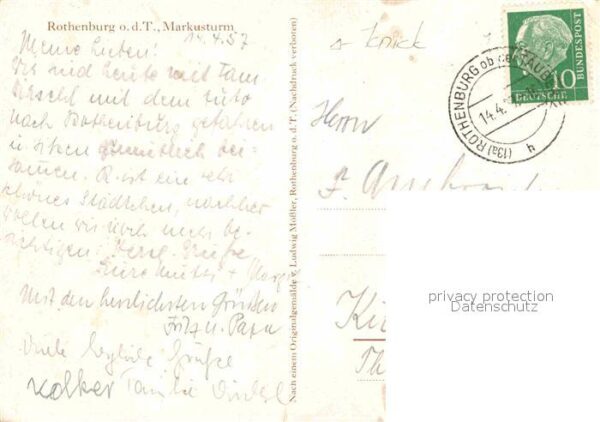 Rothenburg o. d. T., Markusturm
14.4.57
Meine Lieben!
Wir sind heute mit Fam.
und mit dem Auto
nach Rothenburg gefahren
u. sitzen gemütlich bei-
sammen. R. ist ein sehr
schönes Städtchen, nachher
wollen wir noch be-
sichtigen. Herzl. Grüße
Eure Mutter +
Mit den herzlichsten Grüßen
Fritz u. Papa
Viele herzliche Grüße
Volker Familie
Nach einem Originalgemälde v. Ludwig Mößler, Rothenburg o. d. T. (Nachdruck verboten)
DEUTSCHE BUNDESPOST
10
(13a) ROTHENBURG ob der TAUBER
14.4.
Herrn
privacy protection
Datenschutz